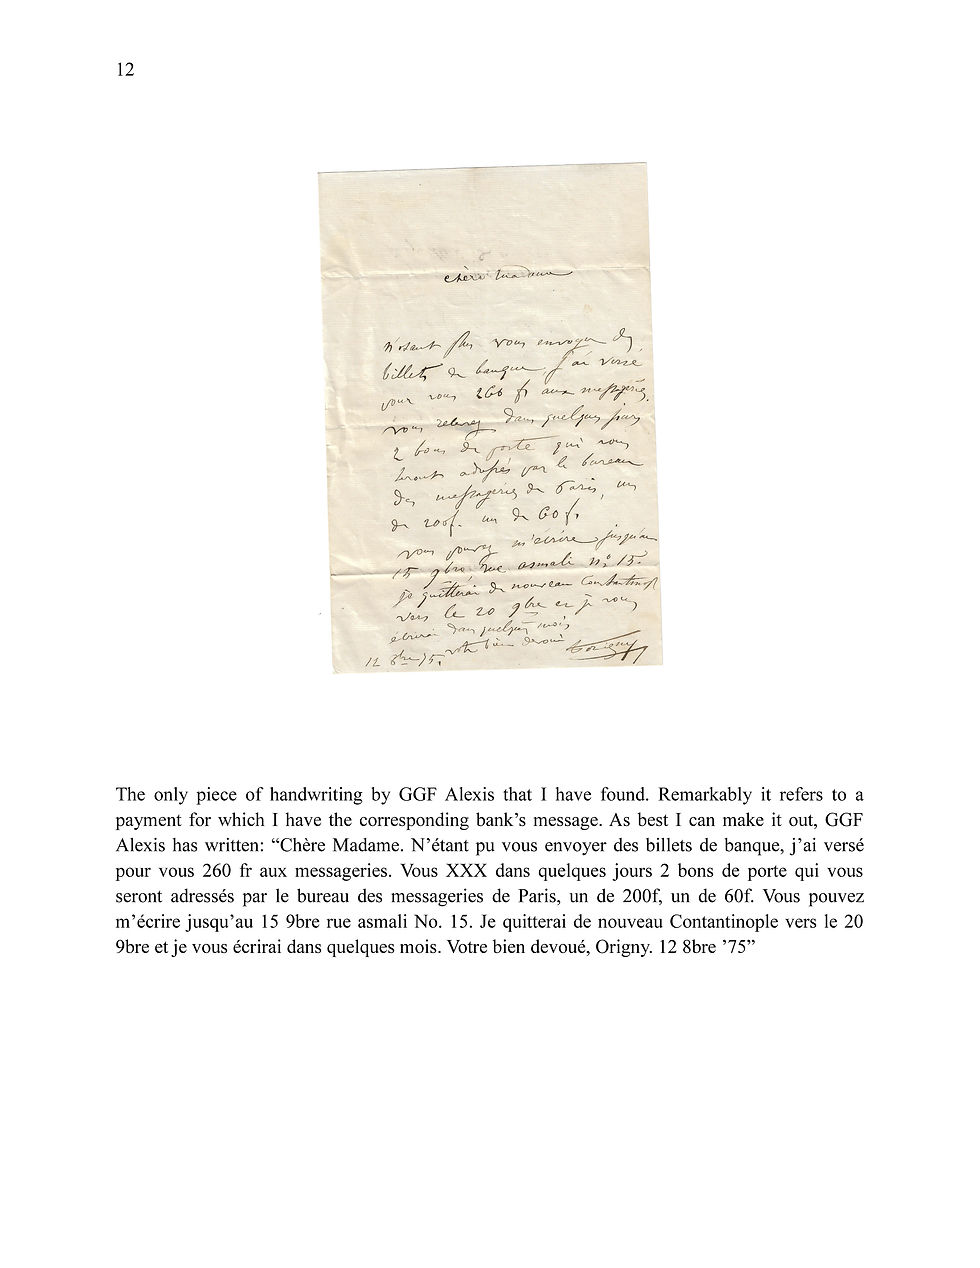 12
chère Madame
n'osant plus vous envoyer des
billets de banque, j'ai versé
pour vous 260 fr aux messageries.
vous recevrez dans quelques jours
2 bons de poste qui vous
seront adressés par le bureau
des messageries de Paris, un
de 200f. un de 60 fr
vous pouvez m'écrire jusqu'au
15 9bre, rue asmali No. 15.
je quitterai de nouveau Constantinople
vers le 20 9bre et je vous
écrirai dans quelques mois
votre bien dévoué
12 8bre 75.
The only piece of handwriting by GGF Alexis that I have found. Remarkably it refers to a
payment for which I have the corresponding bank's message. As best I can make it out, GGF
Alexis has written: “Chère Madame. N’étant pu vous envoyer des billets de banque, j’ai versé
pour vous 260 fr aux messageries. Vous XXX dans quelques jours 2 bons de porte qui vous
seront adressés par le bureau des messageries de Paris, un de 200f, un de 60f. Vous pouvez
m’écrire jusqu’au 15 9bre rue asmali No. 15. Je quitterai de nouveau Contantinople vers le 20
9bre et je vous écrirai dans quelques mois. Votre bien devoué, Origny. 12 8bre ’75”